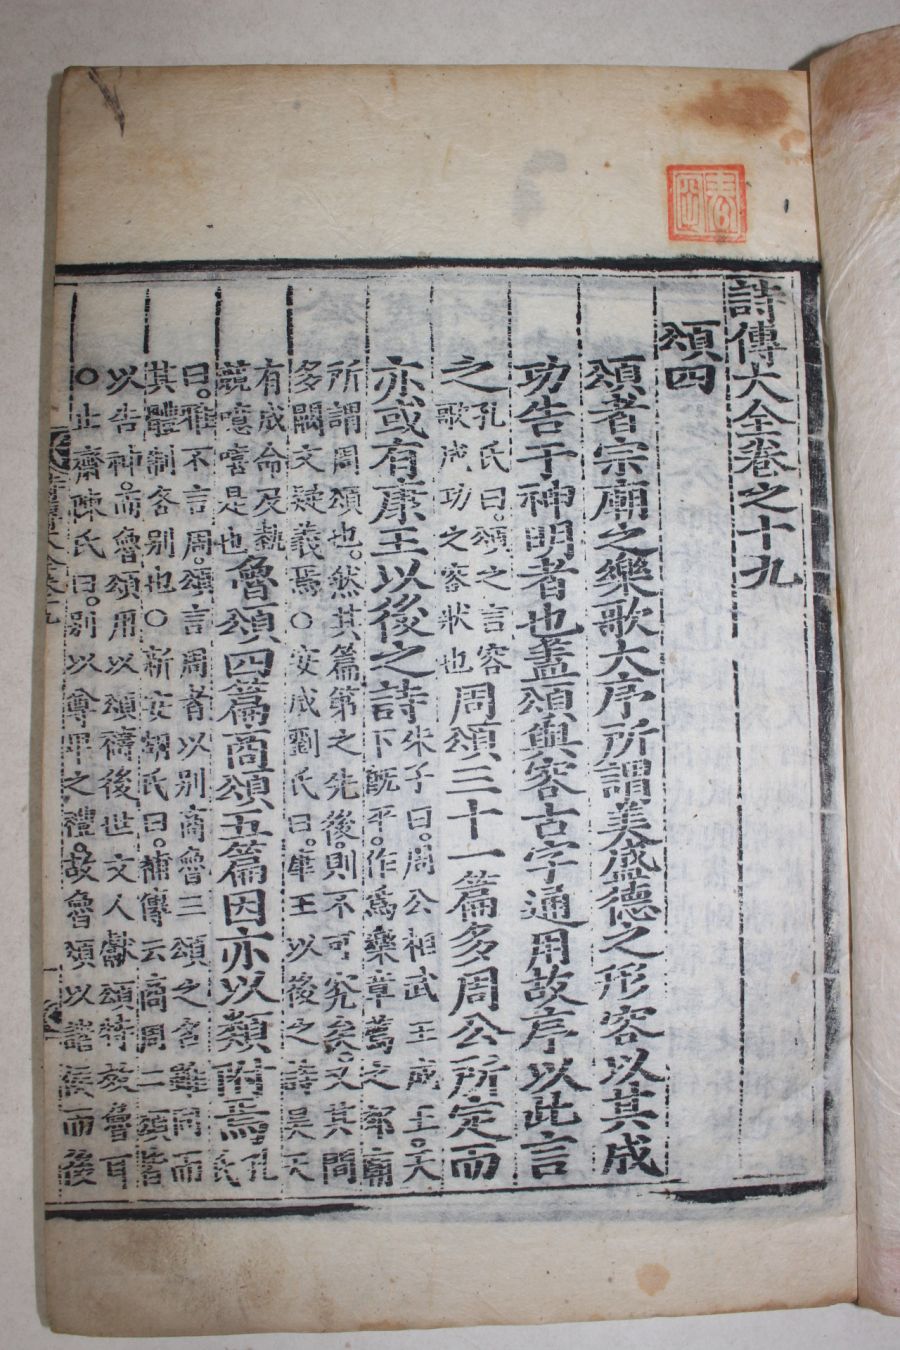 詩傳大全卷之十九
頌四
頌者宗廟之樂歌大序所謂美盛德之形容以其成
功告于神明者也蓋頌與容古字通用故序以此言
之孔氏曰。頌之言容歌成功之容狀也周頌三十一篇多周公所定而
亦或有康王以後之詩朱子曰。周公相武王成王。天下旣平。作爲樂章薦之郊廟
所謂周頌也。然其篇第之先後。則不可究矣。又其間
多闕文疑義焉。○安成劉氏曰。康王以後之詩昊天
有成命及執競噫嘻是也魯頌四篇商頌五篇因亦以類附焉孔氏
曰。雅不言周。頌言周者以別商魯三頌之名雖同而
其體制各別也○新安胡氏曰。補傳云商周二頌皆
以告神。而魯頌用以頌禱後世文人獻頌特效魯耳
○止齋陳氏曰。別以尊卑之禮。故魯頌以諸侯而後